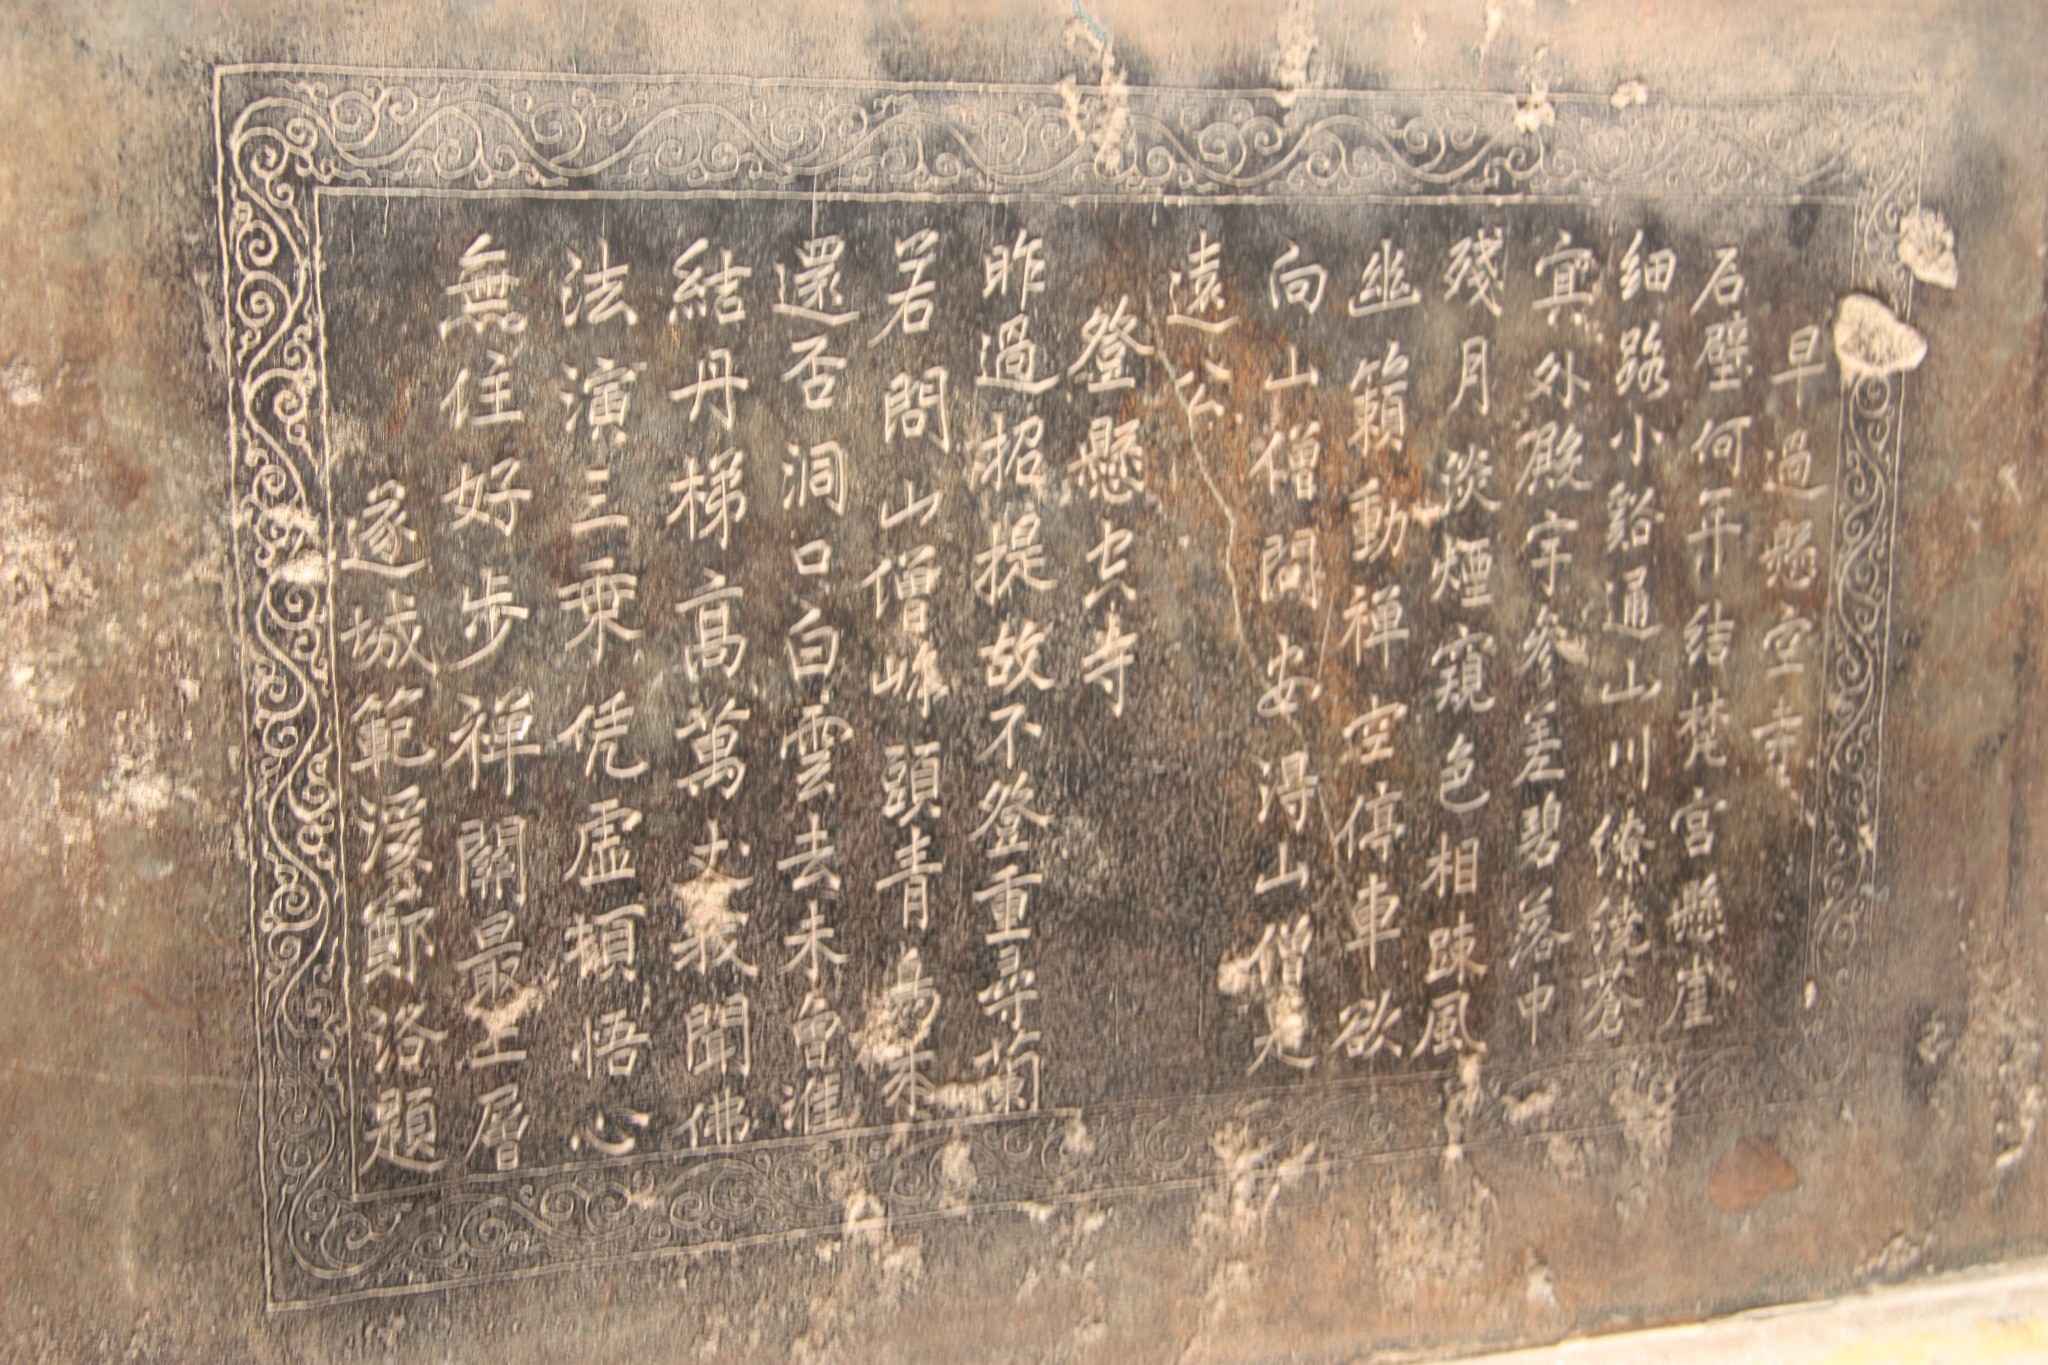 早過懸空寺
石壁何年結梵宮懸崖
细路小谿通山川繚繞蒼
冥外殿宇參差碧落中
殘月淡煙窺色相疎風
幽籟動禅空停車欲
向山僧問安得山僧是
遠公
登懸空寺
昨過招提故不登重尋蘭
若問山僧峰頭青鳥來
還否洞口白雲去未曾誰
結丹梯高萬丈聞佛
法演三乘凭虛頓悟心
無住好步禅關最上層
遂城範溪鄭洛題